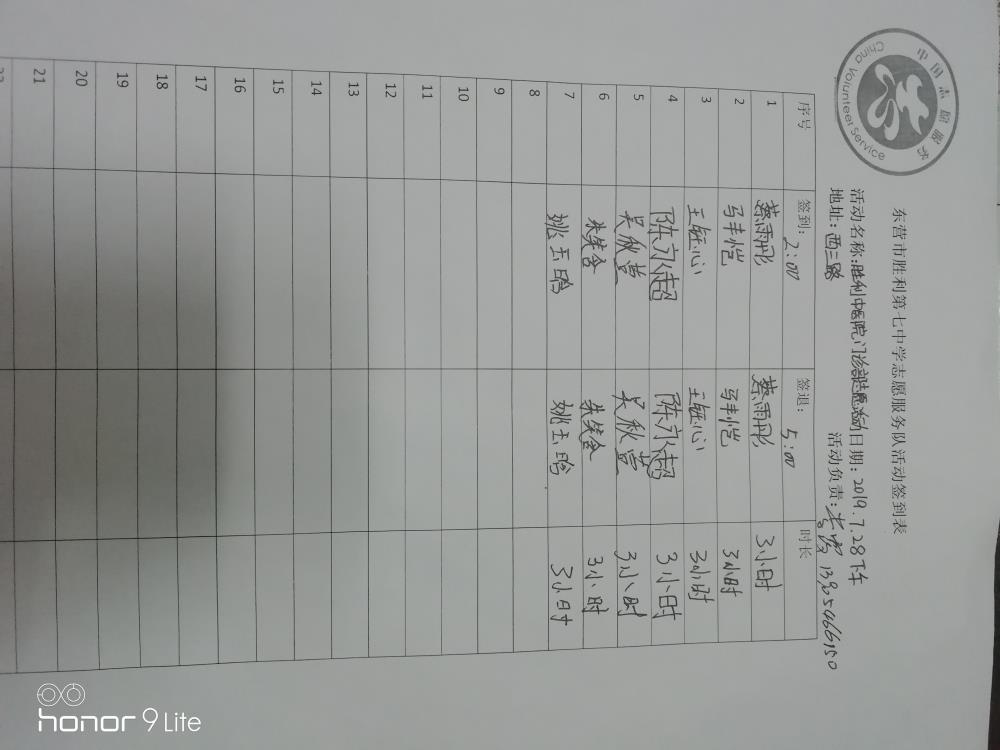 中国志愿服务
China Volunteer Service
东营市胜利第七中学志愿服务队活动签到表
活动名称:胜利中医院门诊部志愿活动 日期:2019.7.28下午
地址:西三路 活动负责:
序号 签到:2:00 签退:5:00 时长
1 蔡雨彤 蔡雨彤 3小时
2 马丰恺 马丰恺 3小时
3 王钰心 王钰心 3小时
4 陈永超 陈永超 3小时
5 吴秋萱 吴秋萱 3小时
6 朱笑含 朱笑含 3小时
7 姚玉晗 姚玉晗 3小时
8
9
10
11
12
13
14
15
16
17
18
19
20
21
22
honor 9 Lite